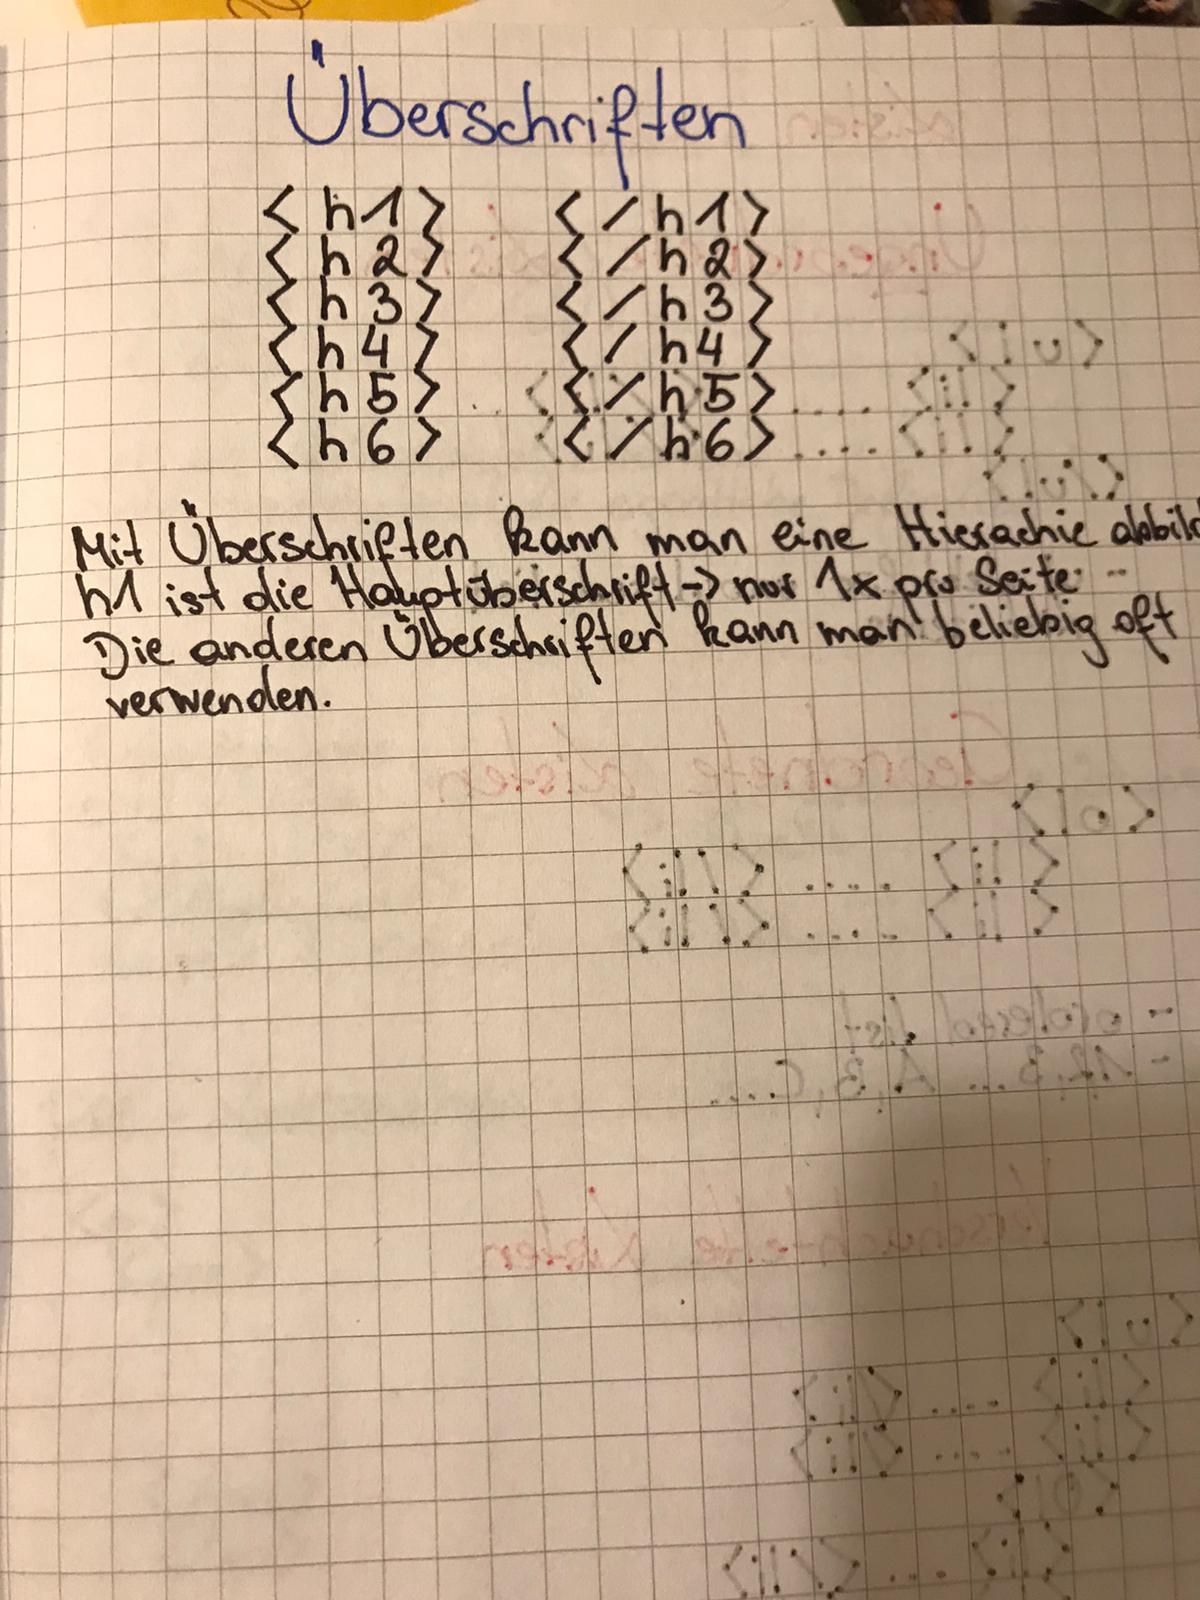 Überschriften
< h1 > < / h1 >
< h2 > < / h2 >
< h3 > < / h3 >
< h4 > < / h4 >
< h5 > < / h5 >
< h6 > < / h6 >
Mit Überschriften kann man eine Hierachie abbild
h1 ist die Hauptüberschrift -> nur 1x pro Seite
Die anderen Überschriften kann man beliebig oft
verwenden.